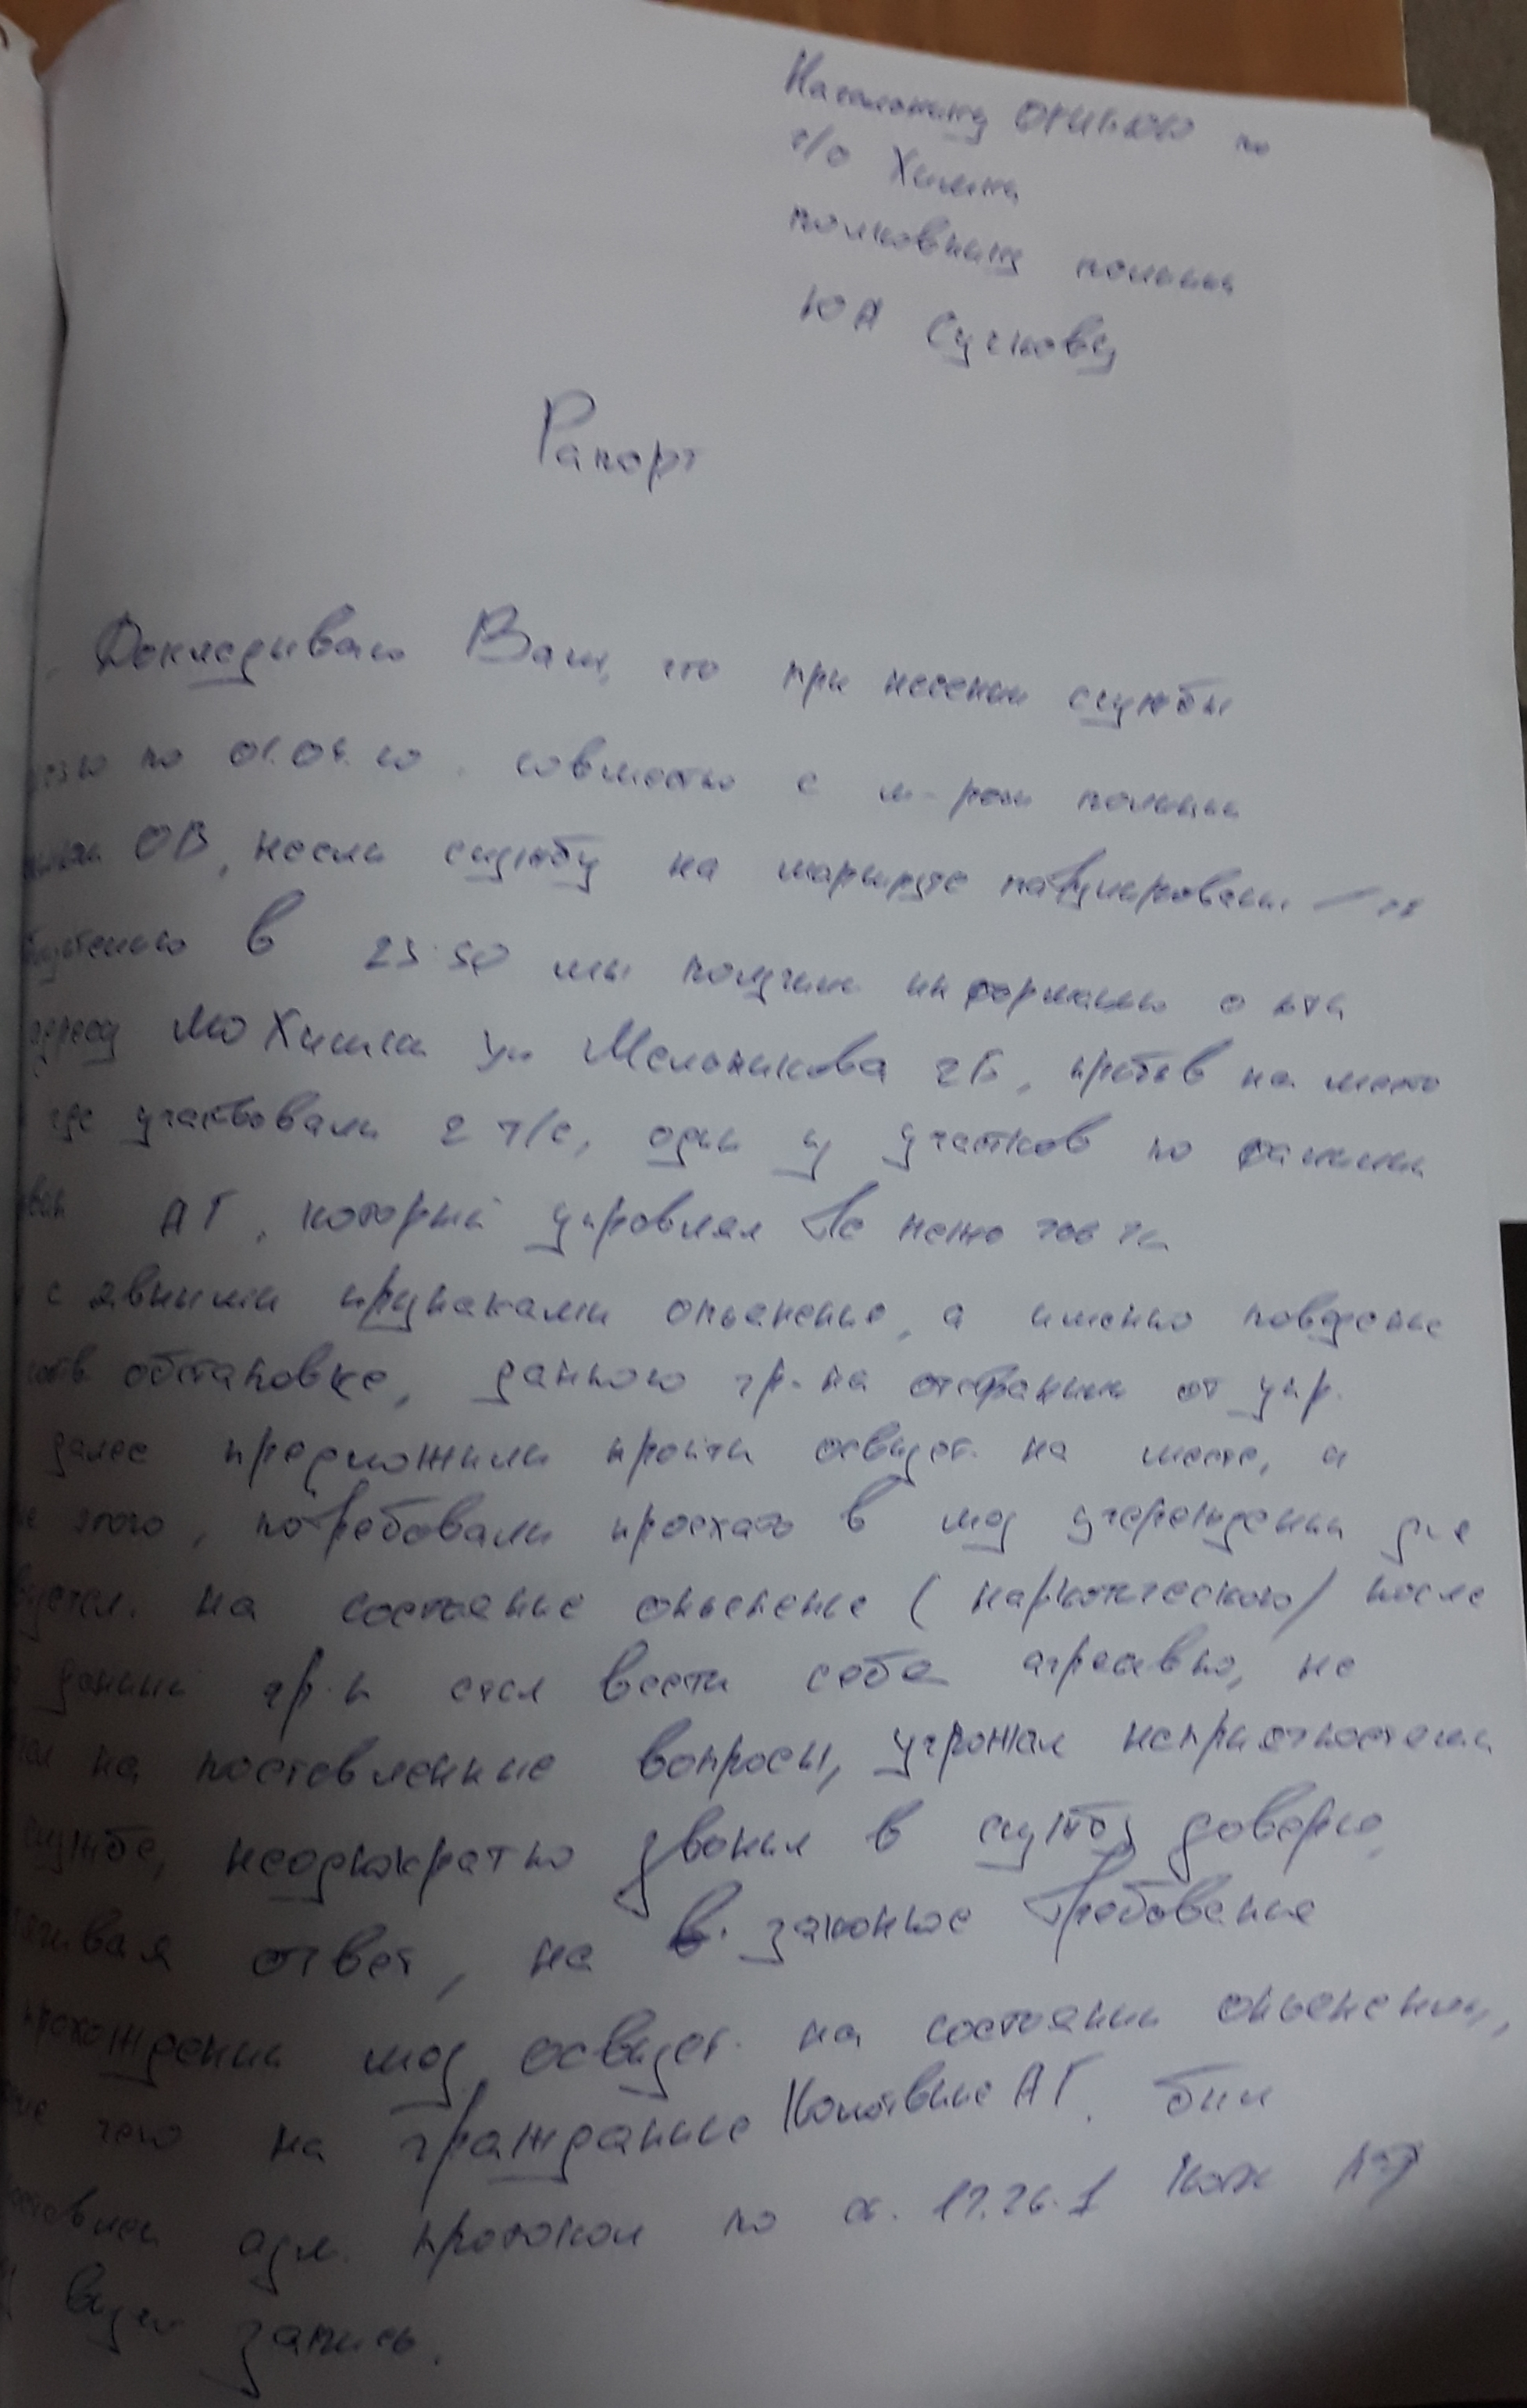 Начальнику ОГИБДД по
г/о Химки
полковнику полиции
ЮА Сучкову
Рапорт
Докладываю Вам, что при несении службы
по 01.04.20. совместно с м-ром полиции
ОВ, несли службу на маршруте патулировани
в 23:50 мы получили информацию о дтп
адресу МО Химки ул Мельникова 2Б, прибыв на место
где участвовали 2 т/с, один из участков по фамилии
АГ, который управлял т/с
с явными признаками опьянения, а именно поведение
обстановке, данного гр-на отстранили от упр.
далее предложили пройти освидет. на месте, и
этого, потребовали проехать в мед учереждении для
на состояние опьянение (наркотического) после
данный гр-н стал вести себя агресивно, не
на поставленные вопросы, угрожал неприятностями
службе, неоднократно звонил в службу доверия,
ответ, на в. законное требование
прохождении мед освидет. на состоянии опьянении,
чего на гражданине АГ. был
адм. протокол по ст. 12.26.1 КоАП РФ
видео запись.